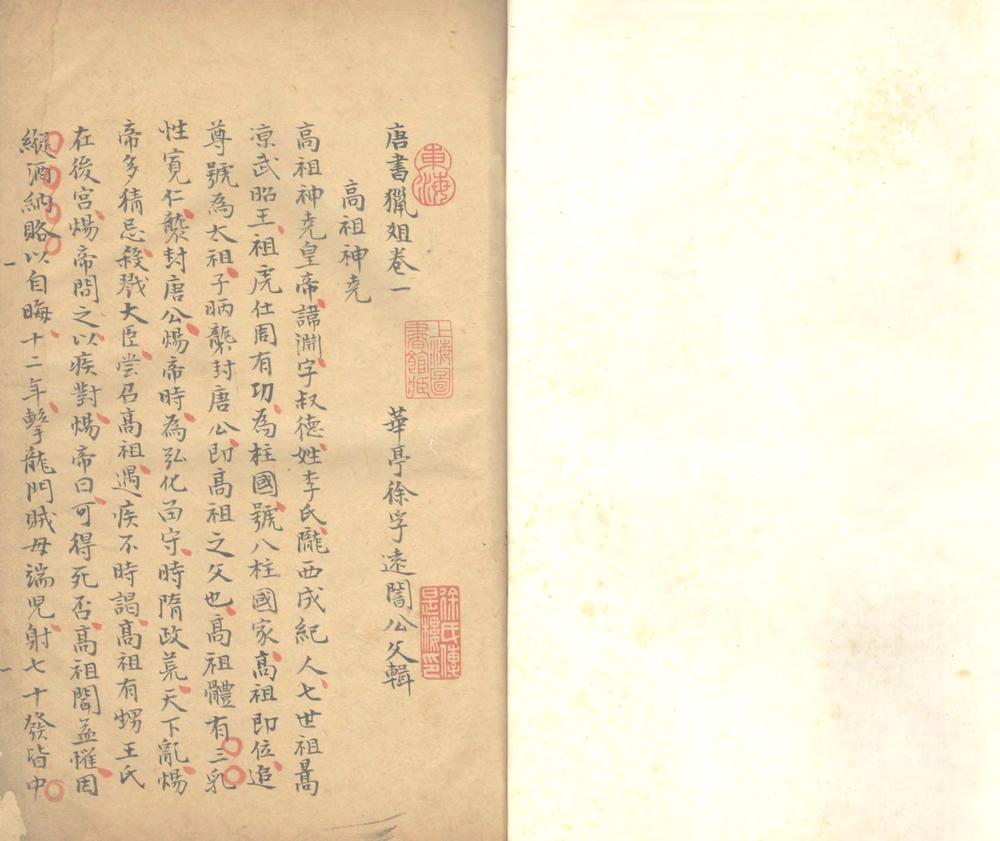 唐書獵俎卷一
華亭徐孚遠闇公父輯
高祖神堯
高祖神堯皇帝諱淵字叔德姓李氏隴西成紀人七世祖暠
涼武昭王祖虎仕周有功為柱國號八柱國家高祖即位追
尊號為太祖子昞襲封唐公即高祖之父也高祖體有三乳
性寬仁襲封唐公煬帝時為弘化留守時隋政荒天下亂煬
帝多猜忌殺戮大臣嘗召高祖遇疾不時謁高祖有甥王氏
在後宮煬帝問之以疾對煬帝曰可得死否高祖聞益懼因
縱酒納賂以自晦十二年擊龍門賊母端児射七十發皆中
東海
上海圖書館藏
徐氏傳是樓印